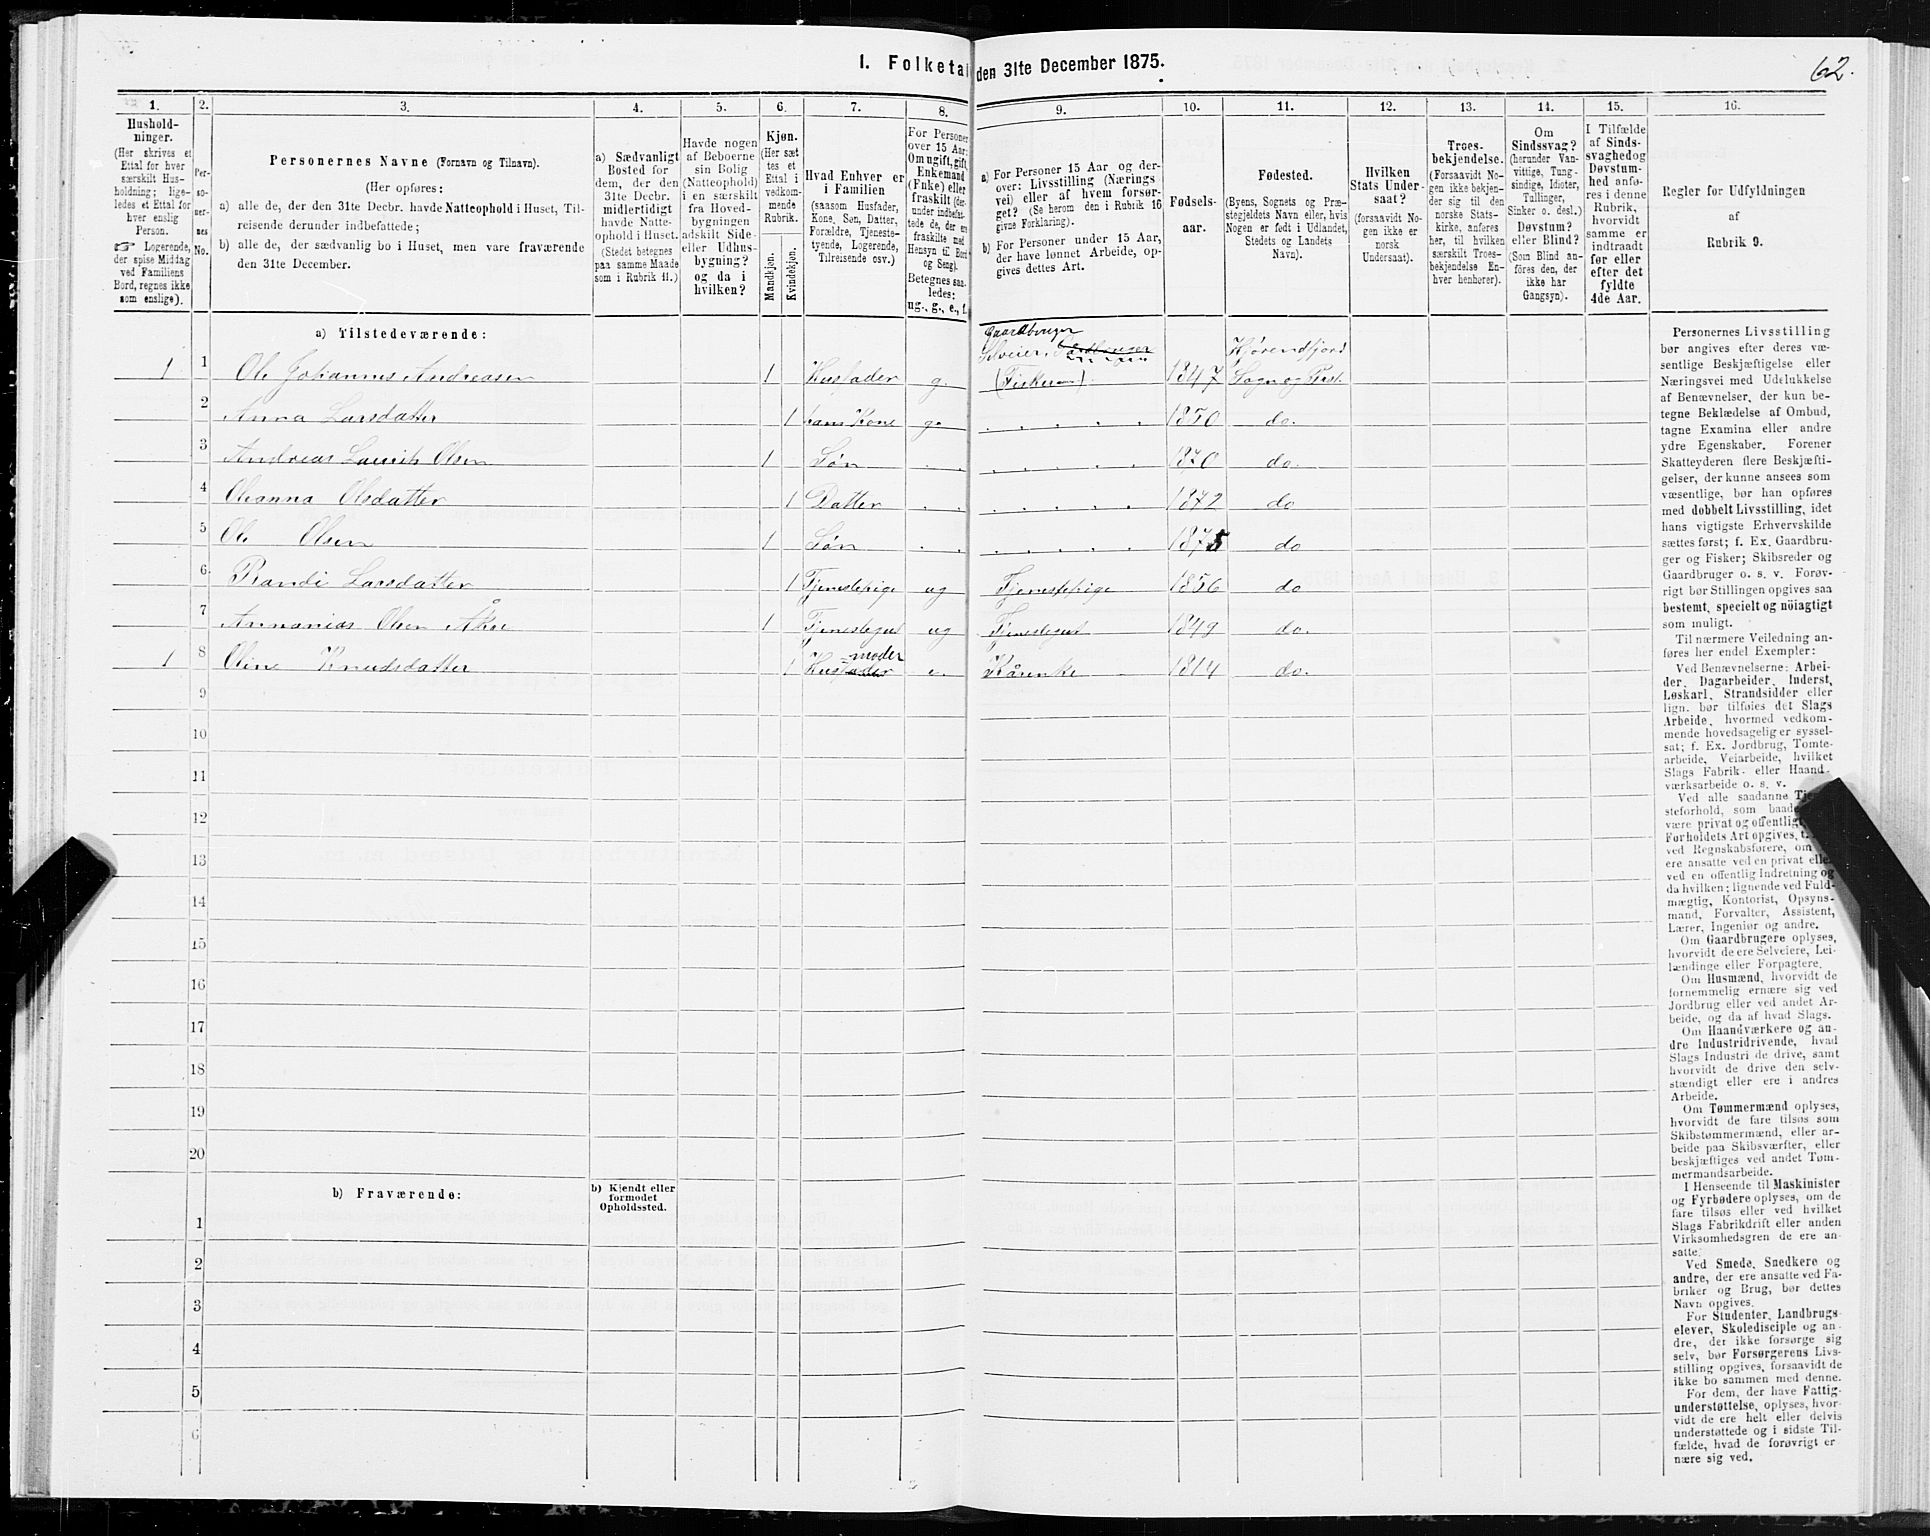 I. Folketal den 31te December 1875.
62.
1.
2.
3.
4.
5.
6.
7.
8.
9.
10.
11.
12.
13.
14.
15.
16.
Hushold-
ninger.
(Her skrives et
Ettal for hver
særskilt Hus-
holdning; lige-
ledes et Ettal for
hver enslig
Person.
☞ Logerende,
der spise Middag
ved Familiens
Bord, regnes ikke
som enslige).
Per-
so-
ner-
nes
No.
Personernes Navne (Fornavn og Tilnavn).
(Her opføres:
a) alle de, der den 31te Decbr. havde Natteophold i Huset, Til-
reisende derunder indbefattede;
b) alle de, der sædvanlig bo i Huset, men vare fraværende
den 31te December.
a) Sædvanligt
Bosted for
dem, der den
31te Decbr.
midlertidigt
havde Natte-
ophold i Huset.
(Stedet betegnes
paa samme Maade
som i Rubrik 11.)
Havde nogen
af Beboerne
sin Bolig
(Natteophold)
i en særskilt
fra Hoved-
bygningen
adskilt Side-
eller Udhus-
bygning?
og da i
hvilken?
Kjøn.
(Her sæt
tes et
Ettal i
vedkom-
mende
Rubrik.
Mandkjøn.
Kvindekjøn.
Hvad Enhver er
i Familien
(saasom Husfader,
Kone, Søn, Datter,
Forældre, Tjeneste-
tyende, Logerende,
Tilreisende osv.)
For Personer
over 15 Aar:
Om ugift, gift,
Enkemand
(Enke) eller
fraskilt (der-
under indbefat-
tede de, der ere
fraskilte med
Hensyn til Bord
og Seng).
Betegnes saa-
ledes:
ug., g., e., f.
a) For Personer 15 Aar og der-
over: Livsstilling (Nærings
vei) eller af hvem forsør-
get? (Se herom den i Rubrik 16
givne Forklaring).
b) For Personer under 15 Aar,
der have lønnet Arbeide, op-
gives dettes Art.
Fødsels-
aar.
Fødested.
(Byens, Sognets og Præ-
stegjeldets Navn eller, hvis
Nogen er født i Udlandet,
Stedets og Landets
Navn).
Hvilken
Stats Under-
saat?
(forsaavidt No-
gen ikke er
norsk
Undersaat).
Troes-
bekjendelse.
(Forsaavidt No-
gen ikke bekjen-
der sig til den
norske Stats-
kirke, anføres
her, til hvilken
særskilt Troes-
bekjendelse En-
hver henhører).
Om
Sindssvag?
(herunder Van-
vittige, Tung-
sindige, Idioter,
Tullinger,
Sinker o. desl.)
Døvstum?
eller Blind?
(Som Blind an-
føres den, der
ikke har
Gangsyn).
I Tilfælde
af Sinds-
svaghed og
Døvstum-
hed anfø-
res i denne
Rubrik,
hvorvidt
samme er
indtraadt
før eller
efter det
fyldte
4de Aar.
Regler for Udfyldningen
af
Rubrik 9.
a) Tilstedeværende:
1 1 Ole Johannes Andreasen 1 Husfader g. Gaardbruger Selveier (Fisker) 1847 Hjørendfjord Sogn og Præst.
2 Anna Larsdatter 1 hans Kone g. 1850 do.
3 Andreas Laurits Olsen 1 Søn 1870 do.
4 Oleanna Olsdatter 1 Datter 1872 do
5 Ole Olsen 1 Søn 1875 do
6. Randi Larsdatter 1 Tjenestepige ug Tjenestepige 1856 do
7 Annanias Olsen Åkre 1 Tjenestegut ug Tjenestegut 1849 do.
1 8 Oline Knudsdatter 1 Husmoder e. Kårenke 1814 do.
9
10
11
12
13
14
15
16
17
18
19
20
b) Fraværende:
b) Kjendt eller
formodet
Opholdssted.
1
2
3
4
5
6
Personernes Livsstilling
bør angives efter deres væ-
sentlige Beskjæftigelse eller
Næringsvei med Udelukkelse
af Benævnelser, der kun be-
tegne Beklædelse af Ombud,
tagne Examina eller andre
ydre Egenskaber. Forener
Skatteyderen flere Beskjæfti-
gelser, der kunne ansees som
væsentlige, bør han opføres
med dobbelt Livsstilling, idet
hans vigtigste Erhvervskilde
sættes først; f. Ex. Gaardbru-
ger og Fisker; Skibsreder og
Gaardbruger o. s. v. Forøv-
rigt bør Stillingen opgives saa
bestemt, specielt og nöiagtigt
som muligt.
Til nærmere Veiledning an-
føres her endel Exempler:
Ved Benævnelserne: Arbei-
der, Dagarbeider, Inderst,
Løskarl, Strandsidder eller
lign. bør tilføies det Slags
Arbeide, hvormed vedkom-
mende hovedsagelig er syssel-
sat; f. Ex. Jordbrug, Tomte-
arbeide, Veiarbeide, hvilket
Slags Fabrik- eller Haand-
værksarbeide o. s. v.
Ved alle saadanne
steforhold, som baade
være privat og offentligt,
Forholdets Art opgives,
ved Regnskabsførere, om
ere ansatte ved en privat eller
ved en offentlig Indretning og
da hvilken; lignende ved Fuld-
mægtig, Kontorist, Opsyns-
mand, Forvalter, Assistent,
Lærer, Ingeniør og andre.
Om Gaardbrugere oplyses,
hvorvidt de ere Selveiere, Lei-
lændinge eller Forpagtere.
Om Husmænd, hvorvidt de
fornemmelig ernære sig ved
Jordbrug eller ved andet Ar-
beide, og da af hvad Slags.
Om Haandværkere og an-
dre Industridrivende, hvad
Slags Industri de drive, samt
hvorvidt de drive den selv-
stændigt eller ere i andres
Arbeide.
Om Tømmermænd oplyses,
hvorvidt de fare tilsøs som
Skibstømmermænd, eller ar-
beide paa Skibsværfter, eller
beskjæftiges ved andet Tøm-
mermandsarbeide.
I Henseende til Maskinister
og Fyrbødere oplyses, om de
fare tilsøs eller ved hvilket
Slags Fabrikdrift eller anden
Virksomhedsgren de ere an-
satte.
Ved Smede, Snedkere og
andre, der ere ansatte ved Fa-
briker og Brug, bør dettes
Navn opgives.
For Studenter, Landbrugs-
elever, Skoledisciple og an-
dre, der ikke forsørge sig
selv, bør Forsørgerens Livs-
stilling opgives, forsaavidt de
ikke bo sammen med denne.
For dem, der have Fattig-
understøttelse, oplyses, hvor-
vidt de ere helt eller delvis
understøttede og i sidste Til-
fælde, hvad de forøvrigt er-
nære sig ved.